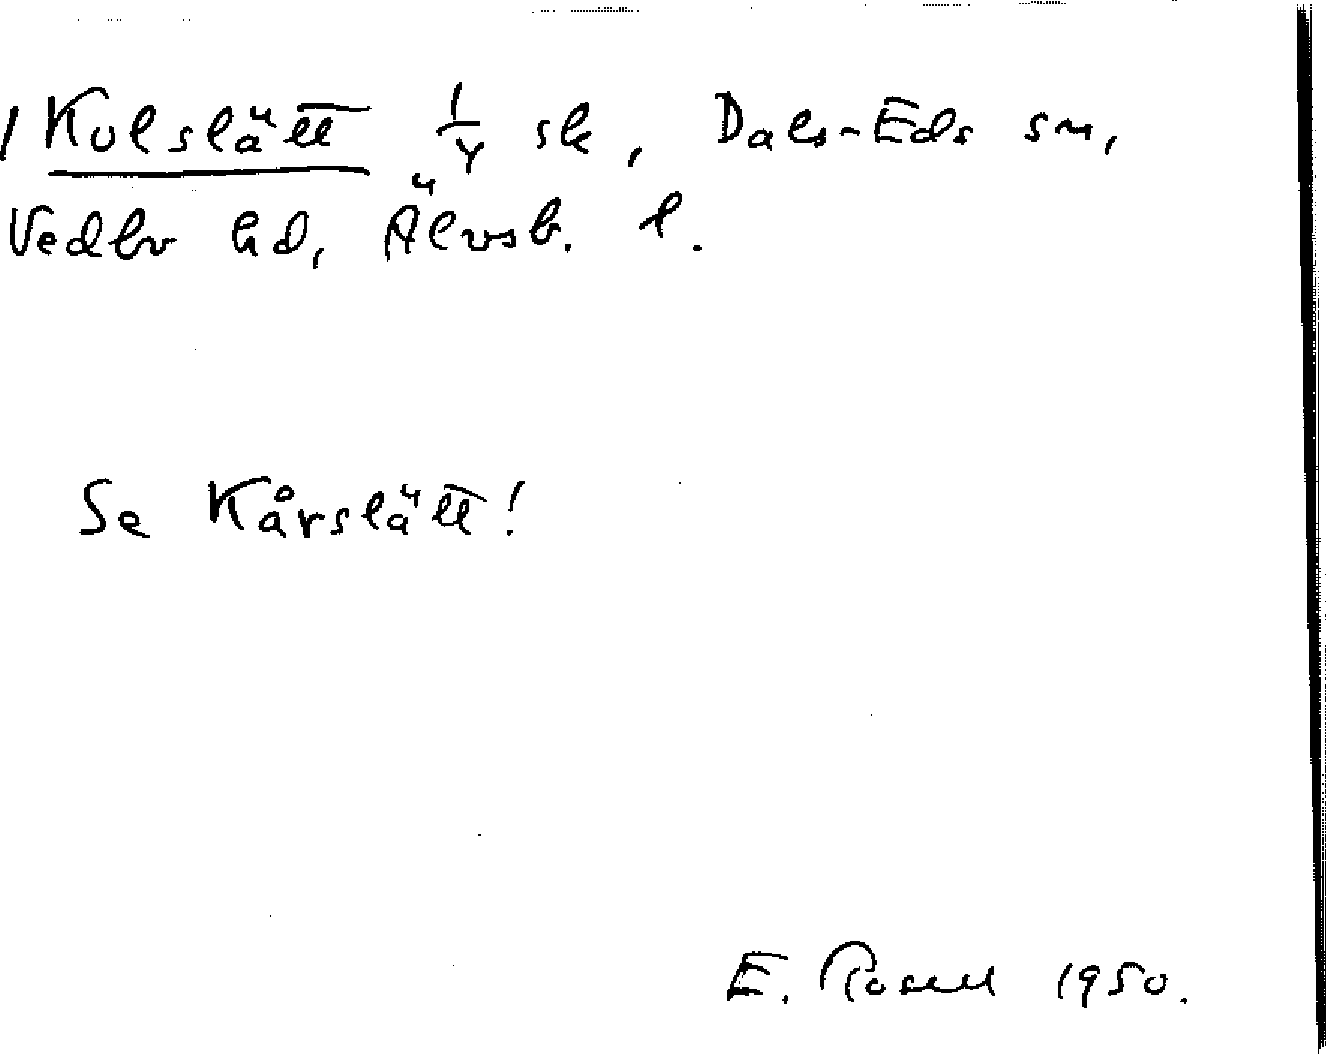 / Kulslätt 1/4 sk, Dals-Eds sn,
Vedbo hd, Älvsb. l.
Se Kårslätt!
E. Rosell 1950.